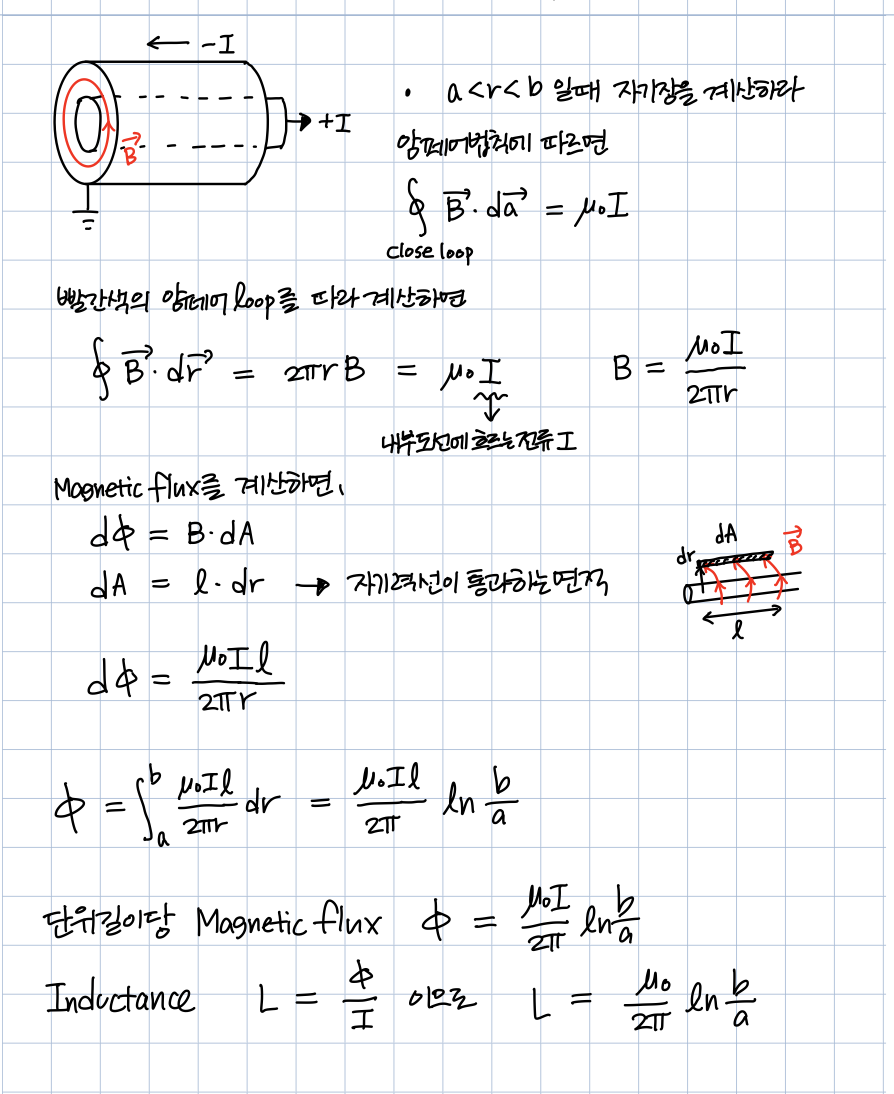 ← -I
→ +I
B⃗
• a<r<b 일때 자기장을 계산하라
암페어법칙에 따르면
∮ B⃗·da⃗ = μ₀I
close loop
빨간색의 암페어 loop를 따라 계산하면
∮ B⃗·dr⃗ = 2πrB = μ₀I B = μ₀I/2πr
내부도선에 흐르는 전류 I
Magnetic flux를 계산하면,
dϕ = B·dA
dA = l·dr → 자기력선이 통과하는 면적
dr dA B⃗
l
dϕ = μ₀Il/2πr
ϕ = ∫ₐᵇ μ₀Il/2πr dr = μ₀Il/2π ln b/a
단위길이당 Magnetic flux ϕ = μ₀I/2π ln b/a
Inductance L = ϕ/I 이므로 L = μ₀/2π ln b/a